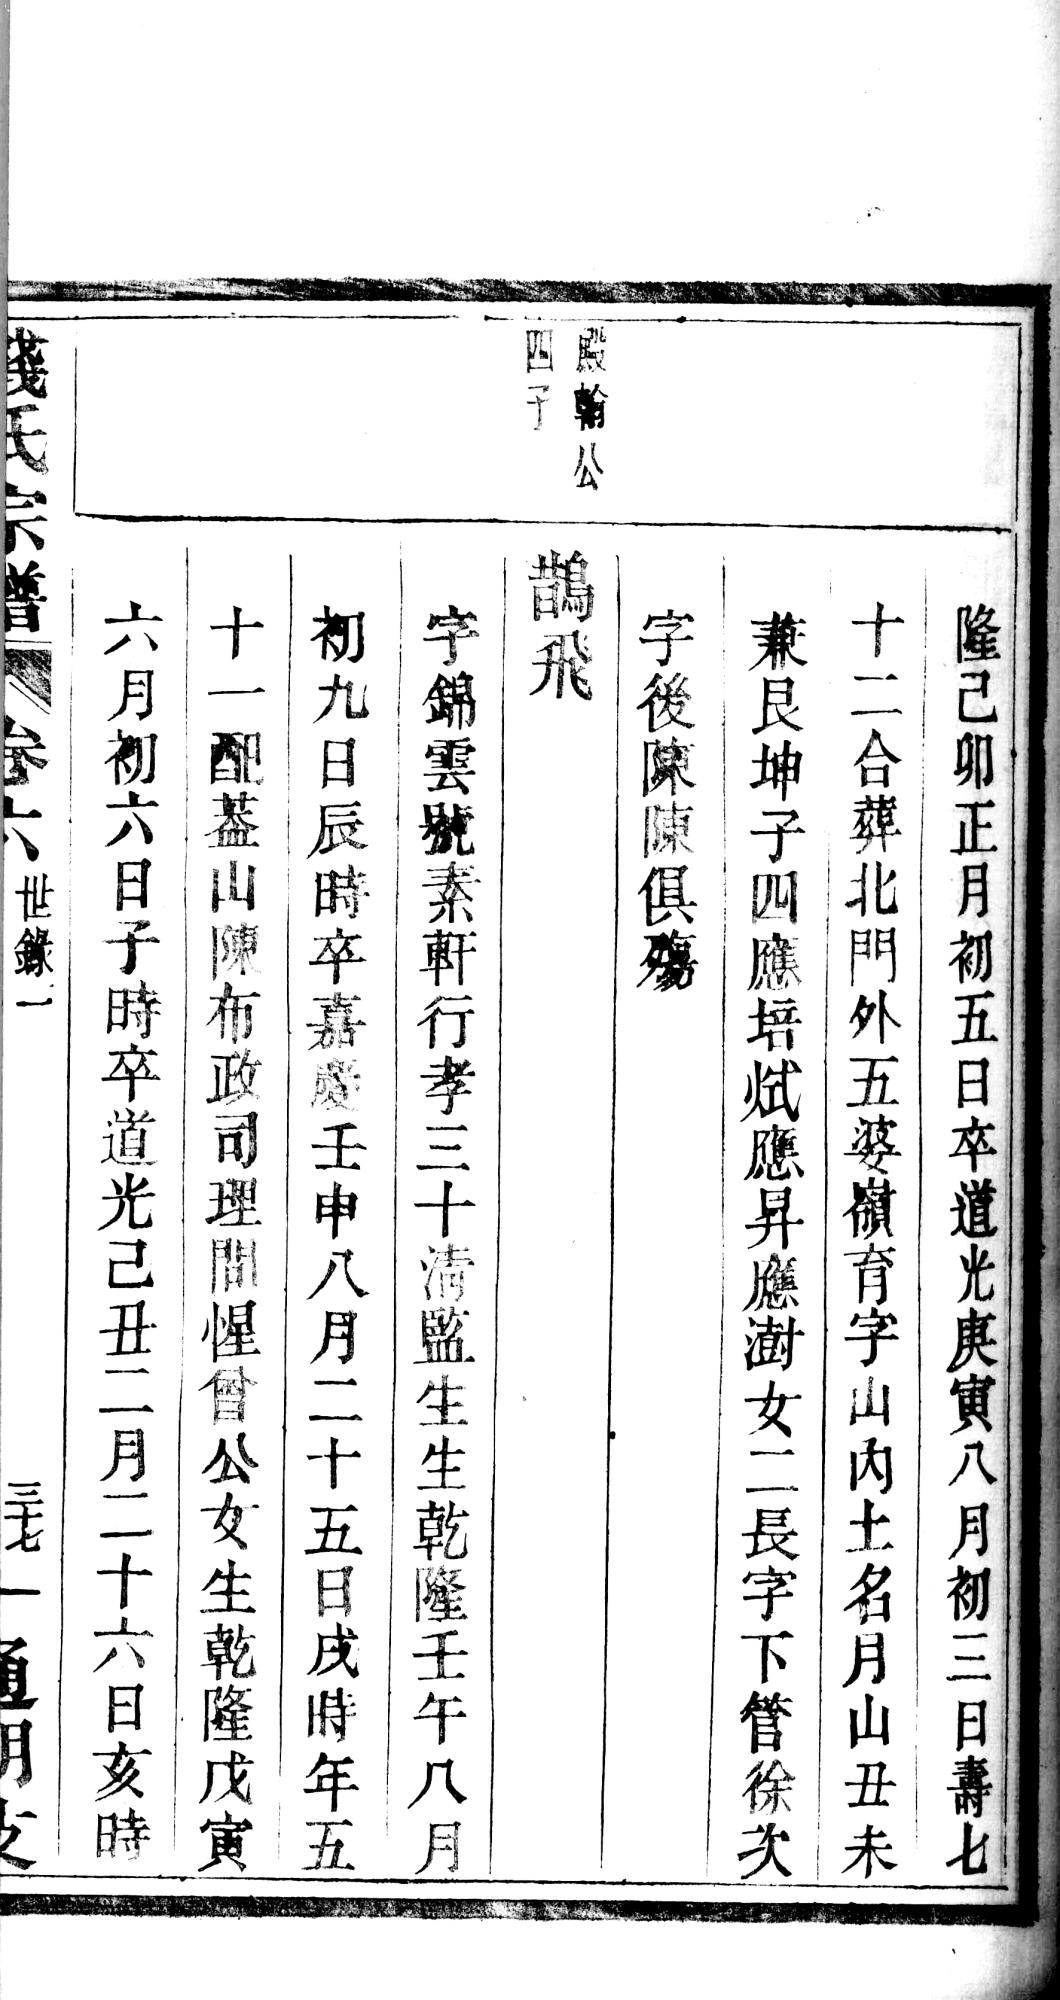 隆己卯正月初五日卒道光庚寅八月初三日壽七
十二合葬北門外五婆嶺育字山內土名月山丑未
兼艮坤子四應培應昇應澍女二長字下管徐次
字後陳陳俱殤
殿翰公
四子
鵲飛
字錦雲號素軒行孝三十清監生生乾隆壬午八月
初九日辰時卒嘉慶壬申八月二十五日戌時年五
十一配葢山陳布政司理問惺曾公女生乾隆戊寅
六月初六日子時卒道光己丑二月二十六日亥時
錢氏宗譜
卷六
世錄一
三十七
通明支